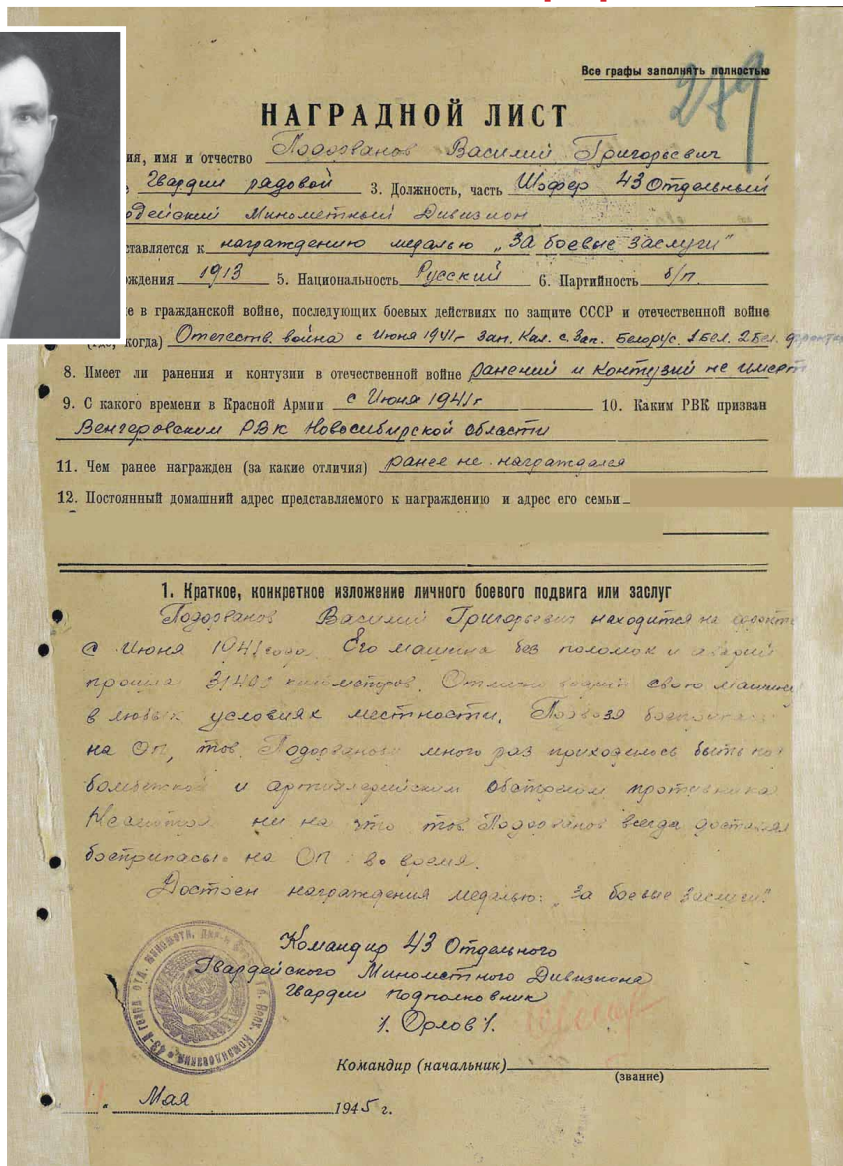 Все графы заполнять полностью
279
НАГРАДНОЙ ЛИСТ
ия, имя и отчество Подорванов Василий Григорьевич
Гвардии рядовой 3. Должность, часть Шофер 43 Отдельный
рдейский Минометный Дивизион
ставляется к награждению медалью „За боевые заслуги"
ождения 1913 5. Национальность Русский 6. Партийность б/п.
ие в гражданской войне, последующих боевых действиях по защите СССР и отечественной войне
(где, когда) Отечеств. война с Июня 1941г Зап. Кал. с. Зап. Белорус. 1 Бел. 2 Бел. фронтах
8. Имеет ли ранения и контузии в отечественной войне ранений и контузий не имеет
9. С какого времени в Красной Армии с Июня 1941г 10. Каким РВК призван
Венгеровским РВК Новосибирской области
11. Чем ранее награжден (за какие отличия) ранее не награждался
12. Постоянный домашний адрес представляемого к награждению и адрес его семьи
1. Краткое, конкретное изложение личного боевого подвига или заслуг
Подорванов Василий Григорьевич находится на фронте
с Июня 1941 года. Его машина без поломок и аварий
прошла километров. Отлично водит свою машину
в любых условиях местности. Подвозя боеприпасы
на ОП, тов. Подорванову много раз приходилось быть под
бомбежкой и артиллерийским обстрелом противника
Несмотря ни на что тов. Подорванов всегда доставлял
боеприпасы на ОП во время.
Достоен награждения медалью: „За боевые заслуги".
Командир 43 Отдельного
Гвардейского Минометного Дивизиона
Гвардии подполковник
/. Орлов /.
Командир (начальник)
(звание)
11 " Мая 1945 г.